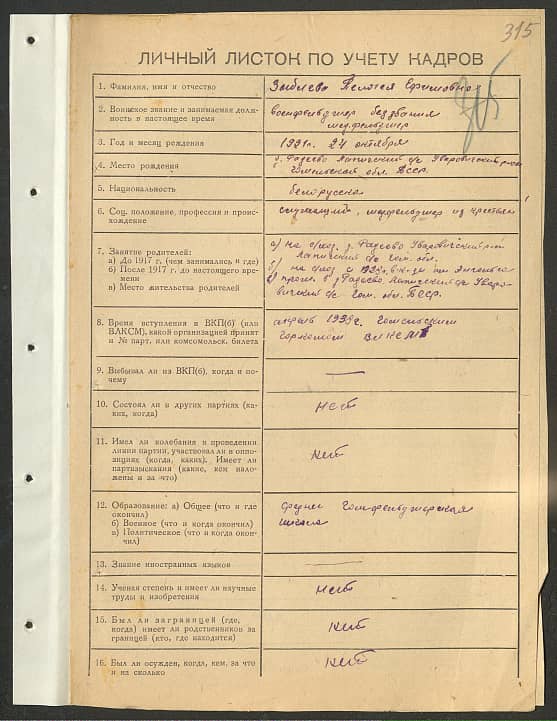 315
ЛИЧНЫЙ ЛИСТОК ПО УЧЕТУ КАДРОВ
1. Фамилия, имя и отчество
Ефимовна
2. Воинское звание и занимаемая долж-
ность в настоящее время
военфельдшер без звания
медфельдшер
3. Год и месяц рождения
1921г. 24 октября
4. Место рождения
д. Фадеево Лапичский с/с Уваровичский район
Гомельская обл. БССР.
5. Национальность
белорусска
6. Соц. положение, профессия и проис-
хождение
служащий, медфельдшер из крестьян
7. Занятие родителей:
а) До 1917 г. (чем занимались и где)
б) После 1917 г. до настоящего вре-
мени
в) Место жительства родителей
а) на д. Фадеево Уваровичский р-н
Лапичский с/с Гом. обл.
б) на
в) прож. в д. Фадеево Лапичский с/с Увара-
вичский Гом. обл. БССР.
8. Время вступления в ВКП(б) (или
ВЛКСМ), какой организацией принят
и № парт. или комсомольск. билета
апрель 1938г. Гомельским
горкомом ВЛКСМ
9. Выбывал ли из ВКП(б), когда и по-
чему
—
10. Состоял ли в других партиях (ка-
ких, когда)
нет
11. Имел ли колебания в проведении
линии партии, участвовал ли в оппо-
зициях (когда, каких). Имеет ли
партвзыскания (какие, кем нало-
жены и за что)
нет
12. Образование: а) Общее (что и где
окончил)
б) Военное (что и когда окончил)
в) Политическое (что и когда окон-
чил)
среднее Гом.фельдшерская
школа
13. Знание иностранных языков
—
14. Ученая степень и имеет ли научные
труды и изобретения
нет
15. Был ли заграницей (где,
когда) имеет ли родственников за
границей (кто, где находится)
нет
16. Был ли осужден, когда, кем, за что
и на сколько
нет